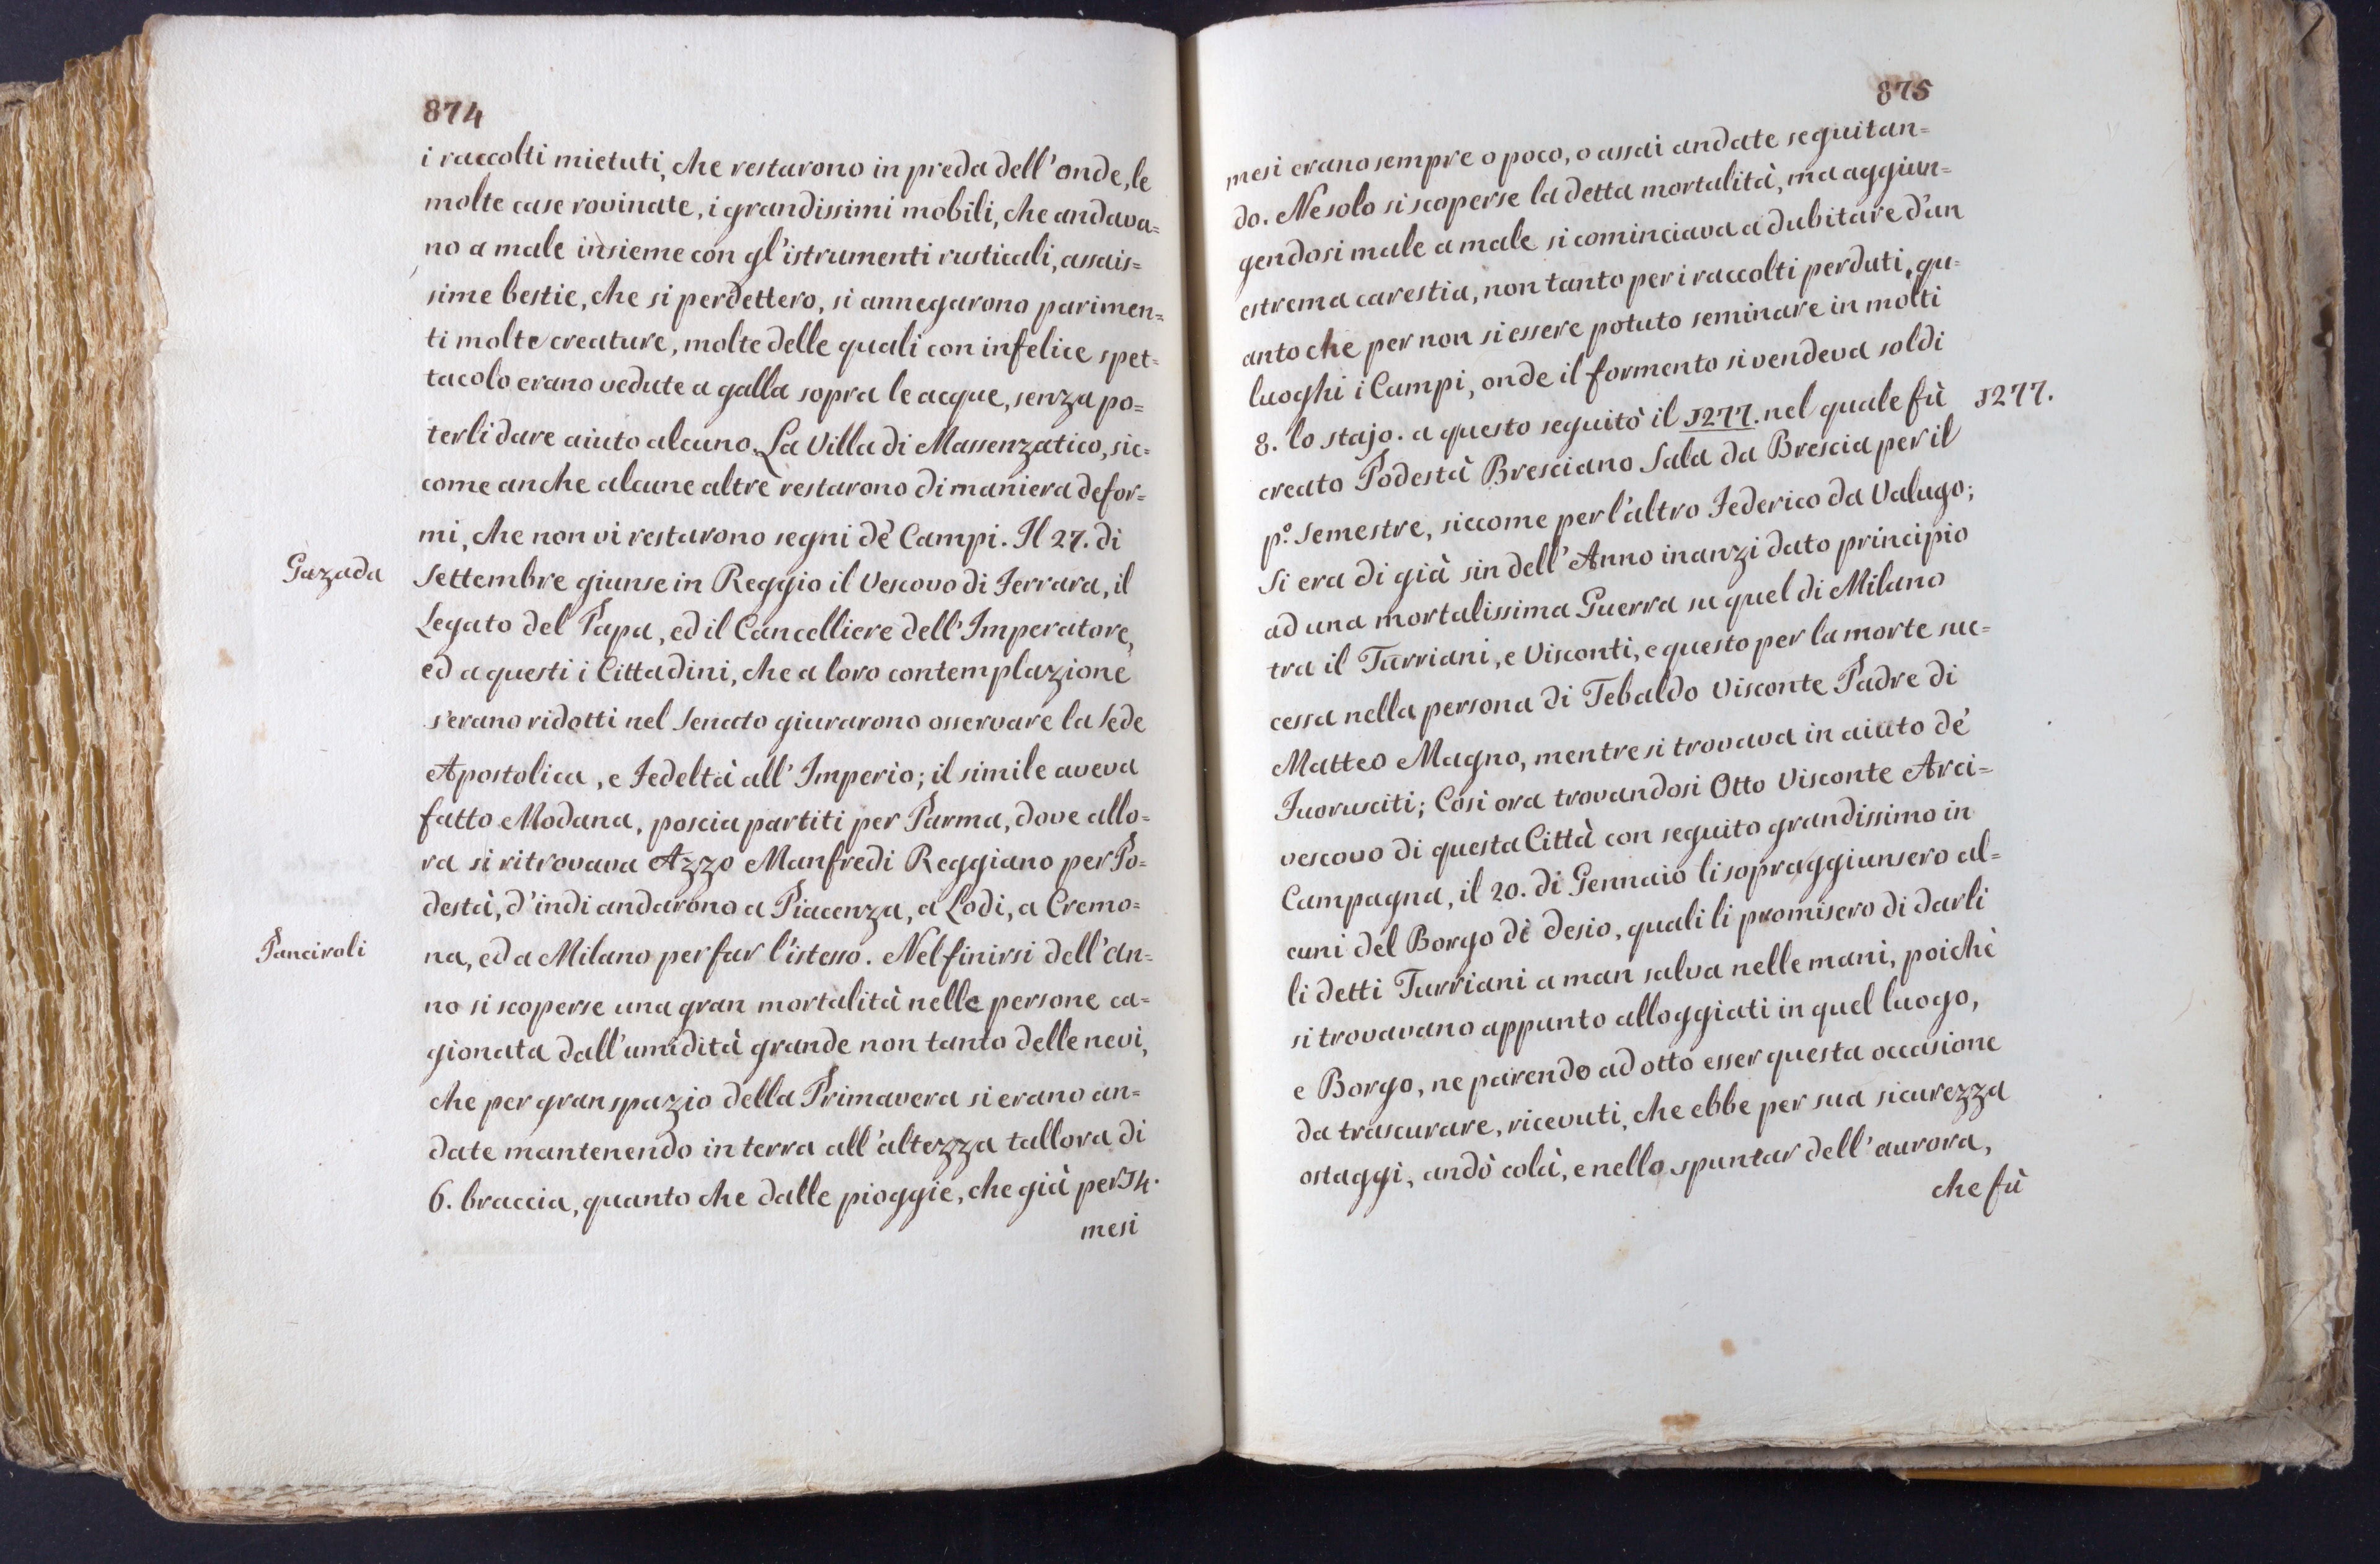 874
i raccolti mietuti, che restarono in preda dell'onde, le
molte case rovinate, i grandissimi mobili, che andava=
no a male insieme con gl'istrumenti rusticali, assais=
sime bestie, che si perdettero, si annegarono parimen=
ti molte creature, molte delle quali con infelice spet=
tacolo erano vedute a galla sopra le acque, senza po=
terli dare aiuto alcuno. La Villa di Massenzatico, sic=
come anche alcune altre restarono di maniera defor=
mi, che non vi restarono segni de' Campi. Il 27. di
Gazada
Settembre giunse in Reggio il Vescovo di Ferrara, il
Legato del Papa, ed il Cancelliere dell'Imperatore,
ed a questi i Cittadini, che a loro contemplazione
s'erano ridotti nel Senato giurarono osservare la Sede
Apostolica, e Fedeltà all'Imperio; il simile aveva
fatto Modana, poscia partiti per Parma, dove allo=
ra si ritrovava Azzo Manfredi Reggiano per Po=
destà, d'indi andarono a Piacenza, a Lodi, a Cremo=
Panciroli
na, ed a Milano per far l'istesso. Nel finirsi dell'An=
no si scoperse una gran mortalità nelle persone ca=
gionata dall'umidità grande non tanto delle nevi,
che per gran spazio della Primavera si erano an=
date mantenendo in terra all'altezza tallora di
6. braccia, quanto che dalle pioggie, che già per 14.
mesi
875
mesi erano sempre o poco, o assai andate seguitan=
do. Ne solo si scoperse la detta mortalità, ma aggiun=
gendosi male a male si cominciava a dubitare d'un
estrema carestia, non tanto per i raccolti perduti, qu=
anto che per non si essere potuto seminare in molti
luoghi i Campi, onde il formento si vendeva soldi
8. lo stajo. a questo seguitò il 1277. nel quale fù
1277.
creato Podestà Bresciano Sala da Brescia per il
p.º Semestre, siccome per l'altro Federico da Valugo;
Si era di già sin dell'Anno inanzi dato principio
ad una mortalissima Guerra su quel di Milano
tra il Turriani, e Visconti, e questo per la morte suc=
cessa nella persona di Tebaldo Visconte Padre di
Matteo Magno, mentre si trovava in aiuto de'
Fuorusciti; Cosi ora trovandosi Otto Visconte Arci=
vescovo di questa Città con seguito grandissimo in
Campagna, il 20. di Gennaio li sopraggiunsero al=
cuni del Borgo di Desio, quali li promisero di darli
li detti Turriani a man salva nelle mani, poichè
si trovavano appunto alloggiati in quel luogo,
e Borgo, ne parendo ad otto esser questa occasione
da trascurare, ricevuti, che ebbe per sua sicurezza
ostaggi, andò colà, e nello spuntar dell'aurora,
che fù